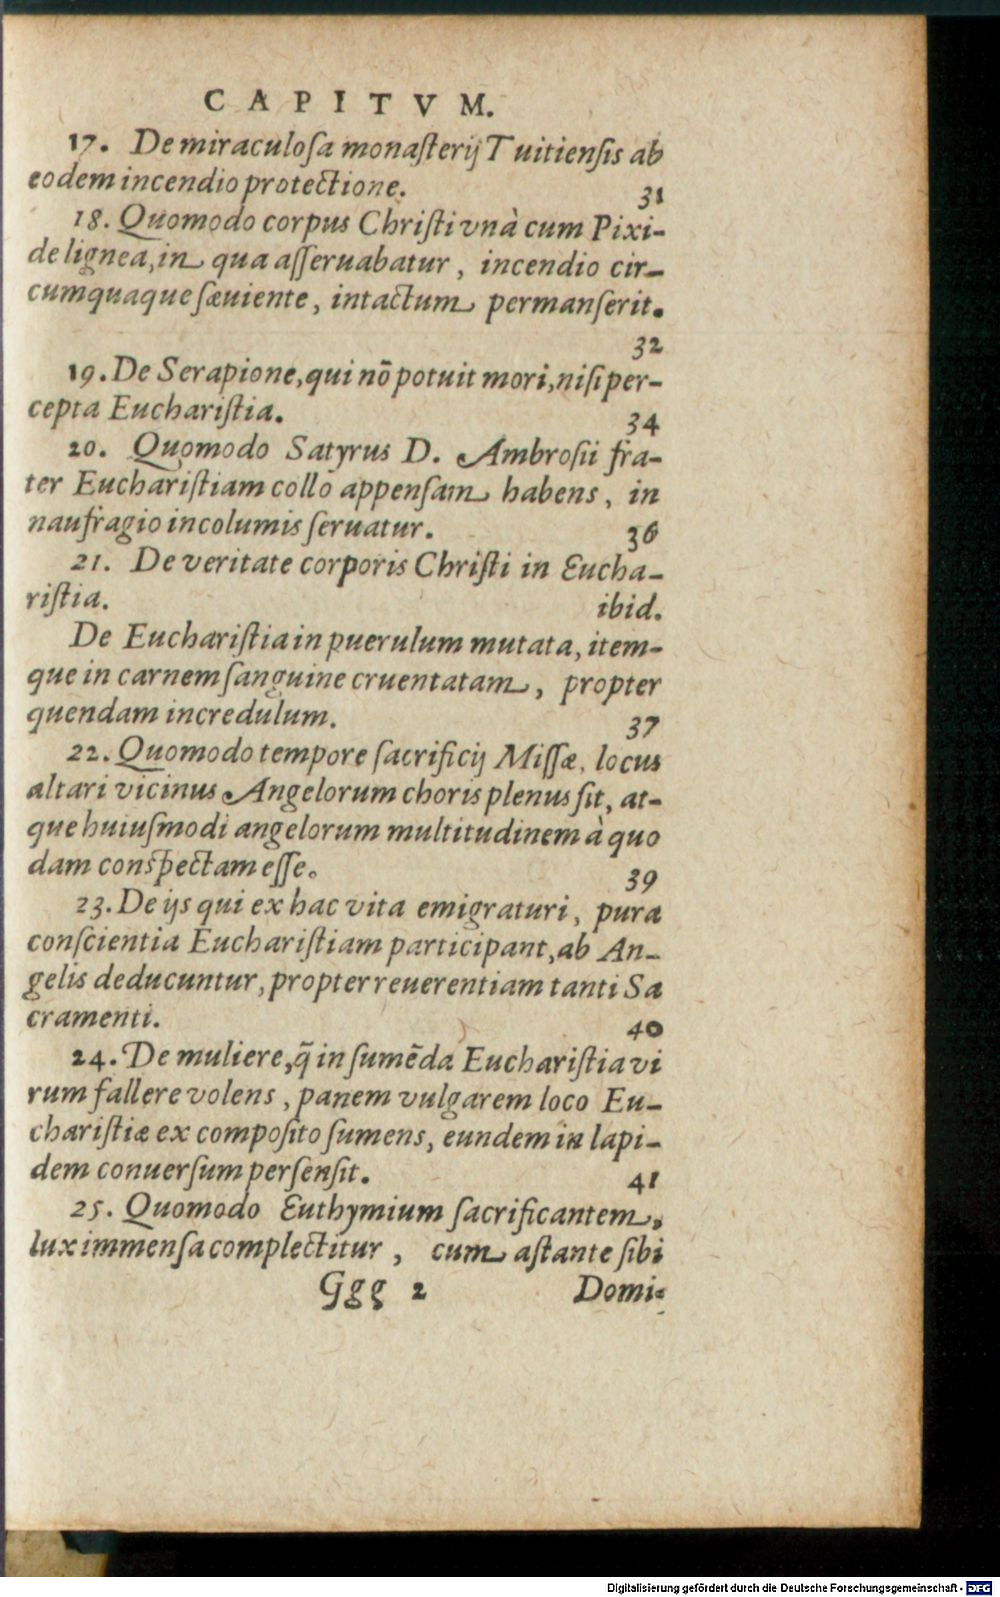 CAPITVM.
17. De miraculoſa monaſterij Tuitienſis ab
eodem incendio protectione. 31
18. Quomodo corpus Chriſti vnà cum Pixi-
de lignea, in qua aſſeruabatur, incendio cir-
cumquaque ſæuiente, intactum permanſerit.
32
19. De Serapione, qui nō potuit mori, niſi per-
cepta Euchariſtia. 34
20. Quomodo Satyrus D. Ambroſii fra-
ter Euchariſtiam collo appenſam habens, in
naufragio incolumis ſeruatur. 36
21. De veritate corporis Chriſti in Eucha-
riſtia. ibid.
De Euchariſtia in puerulum mutata, item-
que in carnem ſanguine cruentatam, propter
quendam incredulum. 37
22. Quomodo tempore ſacrificij Miſſæ, locus
altari vicinus Angelorum choris plenus ſit, at-
que huiuſmodi angelorum multitudinem à quo
dam conſpectam eſſe. 39
23. De ijs qui ex hac vita emigraturi, pura
conſcientia Euchariſtiam participant, ab An-
gelis deducuntur, propter reuerentiam tanti Sa
cramenti. 40
24. De muliere, q̄ in ſumēda Euchariſtia vi
rum fallere volens, panem vulgarem loco Eu-
chariſtiæ ex compoſito ſumens, eundem in lapi-
dem conuerſum perſenſit. 41
25. Quomodo Euthymium ſacrificantem,
lux immenſa complectitur, cum aſtante ſibi
Ggg 2 Domi-
Digitalisierung gefördert durch die Deutsche Forschungsgemeinschaft - DFG